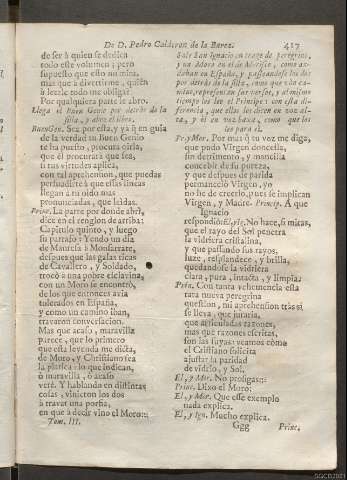 De D. Pedro Calderon de la Barca. 417
de ser à quien se dedicò
todo este volumen; pero
supuesto que esto no mira,
mas que à divertirme, quièn
à leerle todo me obliga?
Por qualquiera parte le abro.
Llega el Buen Genio por detràs de la
silla, y abre el libro.
BuenGen. Sea por esta, y ya q̃ en guia
de la verdad su Buen Genio
te ha puesto, procura oirla,
que èl procurarà que sea,
si tus virtudes aplica,
con tal aprehension, que puedas
persuadirte à que estas lineas
llegan à tu oìdo mas
pronunciadas, que leìdas.
Princ. La parte por donde abrì,
dice en el renglon de arriba:
Capitulo quinto, y luego
su parrafo: Yendo un dia
de Manresa à Monserrate,
despues que las galas ricas
de Cavallero, y Soldado,
trocò à una pobre esclavina,
con un Moro se encontrò,
de los que entonces avia
tolerados en España,
y como un camino iban,
travaron conversacion.
Mas què acaso, ò maravilla
parece, que lo primero
que esta leyenda me dicta,
de Moro, y Christiano sea
la platica: lo que indican,
ò maravilla, ò acaso
verè. Y hablando en distintas
cosas, vinieron los dos
à travar una porfia,
en que à decir vino el Moro::
Tom. III.
Sale San Ignacio en trage de peregrino,
y un Moro en el de Morisco, como an-
daban en España, y passeandose los dos
por detràs de la silla, como que và ca-
mitas, representan sus versos, y al mismo
tiempo los lee el Principe: con esta dis-
ferencia, que ellos los dicen en voz al-
ta, y èl en voz baxa, como que los
lee para sì.
Pr. y Mor. Por mas q̃ tu voz me diga,
que pudo Virgen doncella,
sin detrimento, y mancilla
concebir de su pureza,
y que despues de parida
permaneciò Virgen, yo
no he de creerlo, pues se implican
Virgen, y Madre. Princip. A que
Ignacio
respondiò: El, y Ig. No hace, si miras,
que el rayo del Sol penetra
la vidriera cristalina,
y que passando sus rayos,
luze, resplandece, y brilla,
quedandose la vidriera
clara, pura, intacta, y limpia.
Prin. Con tanta vehemencia esta
rara nueva peregrina
question, mi aprehension tràs sì
se lleva, que juraria,
que articuladas razones,
mas què razones escritas,
son las suyas: veamos còmo
el Castissimo solicita
ajustar la paridad
de vidrio, y Sol.
El, y Mor. No prosigas::
Princ. Dixo el Moro:
El, y Mor. Que esse exemplo
nada explica.
El, y Ign. Mucho explica.
Ggg Princ.